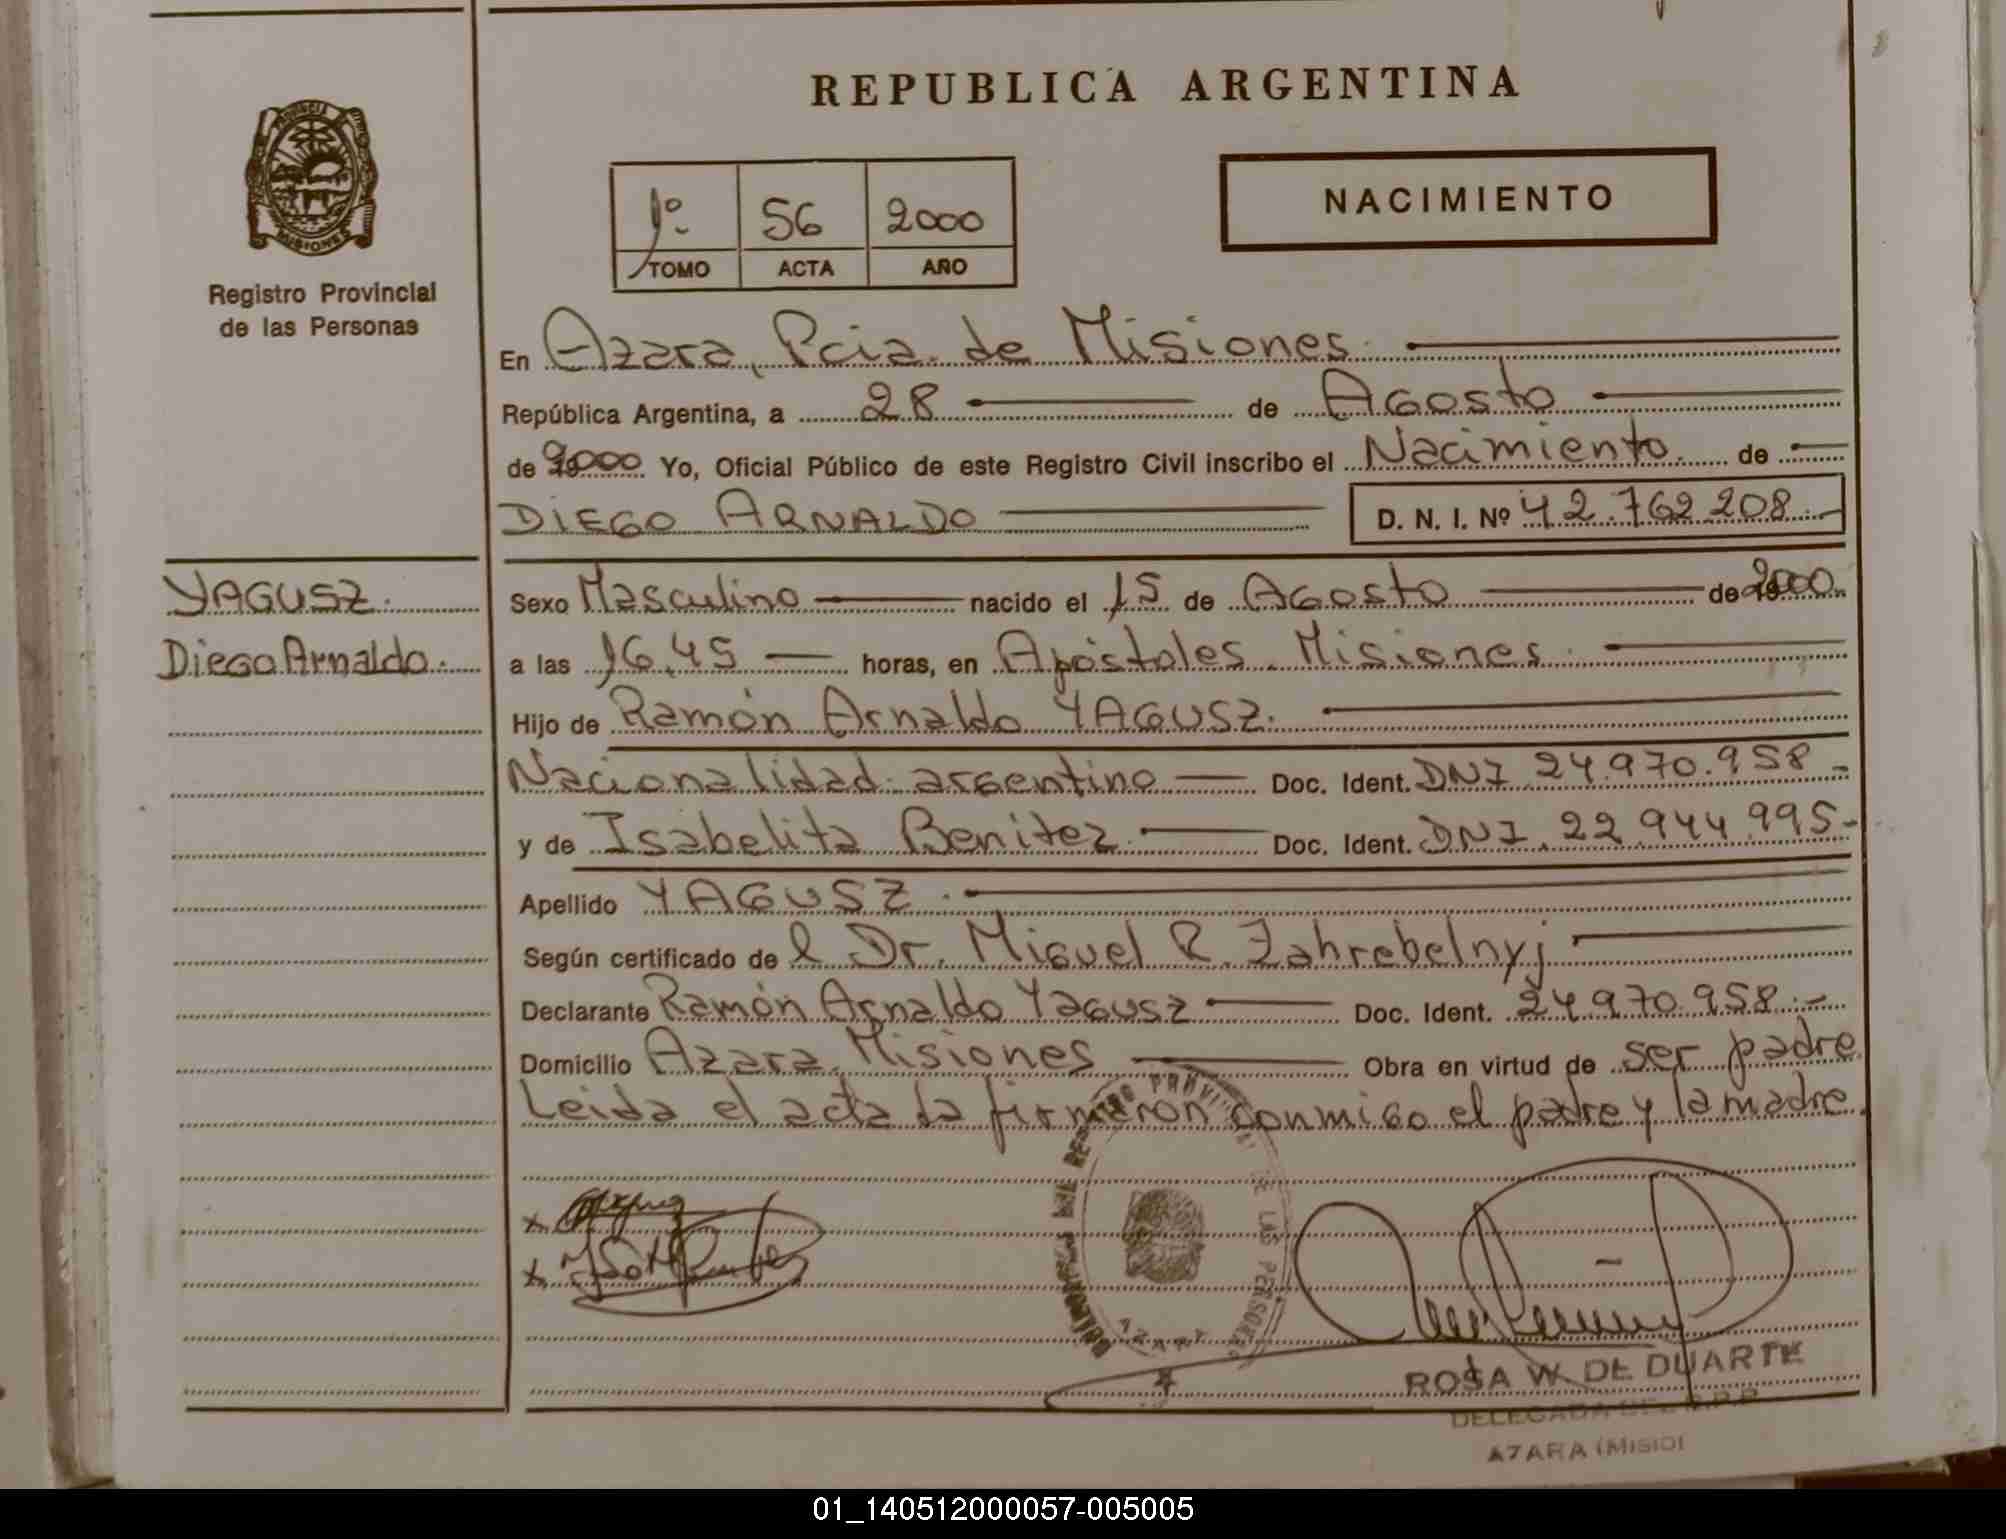 REPUBLICA ARGENTINA
PROVINCIA DE MISIONES
Registro Provincial
de las Personas
1º 56 2000
TOMO ACTA AÑO
NACIMIENTO
En Azara, Pcia. de Misiones
República Argentina, a 28 de Agosto
de 2000 Yo, Oficial Público de este Registro Civil inscribo el Nacimiento de
DIEGO ARNALDO D. N. I. Nº 42.762.208.-
YAGUSZ.
Diego Arnaldo.
Sexo Masculino nacido el 15 de Agosto de 2000.
a las 16,45 horas, en Apóstoles. Misiones.
Hijo de Ramón Arnaldo YAGUSZ.
Nacionalidad: argentino Doc. Ident. DNI 24.970.958-
y de Isabelita Benitez. Doc. Ident. DNI. 22.944.995-
Apellido YAGUSZ.
Según certificado de l Dr. Miguel R. Zahrebelnyj
Declarante Ramón Arnaldo Yagusz Doc. Ident. 24.970.958.-
Domicilio Azara. Misiones Obra en virtud de ser padre.
Leida el acta la firmaron conmigo el padre y la madre.
DELEGACION DEL REGISTRO PROVINCIAL DE LAS PERSONAS
AZARA
ROSA W. DE DUARTE
DELEGADA DEL R.P.P
AZARA (MISIO)
01_140512000057-005005